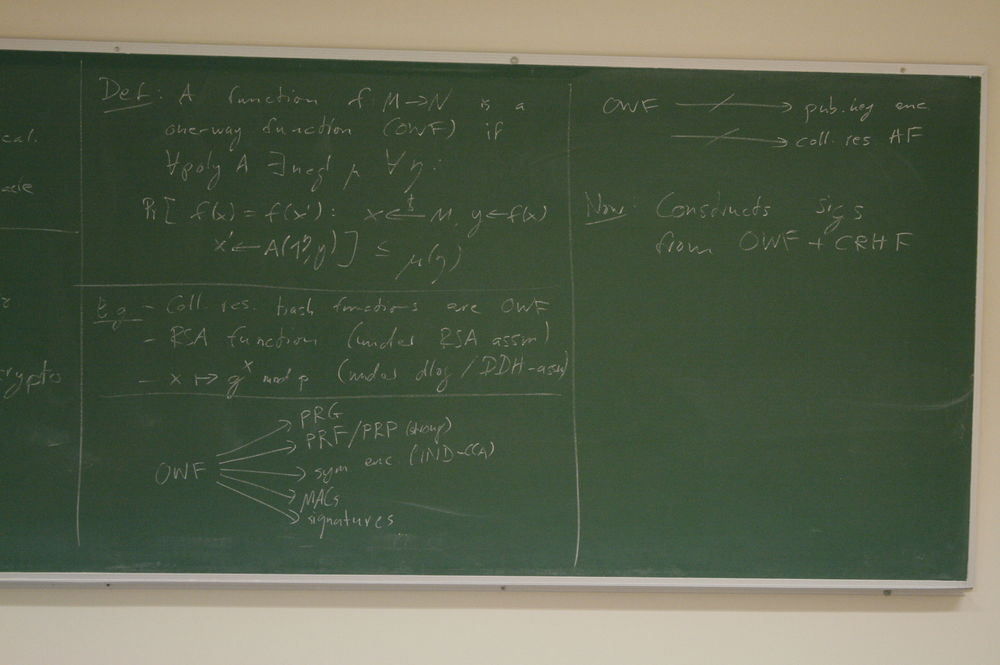 cal.
Def: A function f: M→N is a
one-way function (OWF) if
∀poly A ∃negl μ ∀η:
Pr[ f(x) = f(x'): x ←$ M, y←f(x)
x'←A(1^η,y) ] ≤ μ(η)
E.g. - Coll. res. hash functions are OWF
- RSA function (under RSA assm)
- x ↦ g^x mod p (under dlog / DDH-assm)
OWF
PRG
PRF/PRP (strong)
sym enc (IND-CCA)
MACs
signatures
OWF pub.key enc
coll. res HF
Now: Constructs sigs
from OWF + CRHF